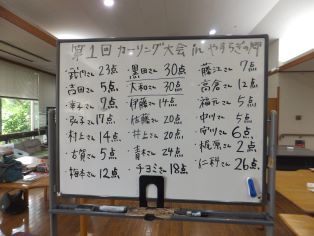 第1回カーリング大会 in やすらぎの郷
・武内さん 23点
・吉田さん 5点
・幸子さん 7点
・弘子さん 17点
・村上さん 14点
・古賀さん 5点
・柏木さん 12点
・黒田さん 30点
・大和さん 30点
・伊藤さん 14点
・佐藤さん 20点
・井上さん 20点
・青木さん 24点
・チヨミさん 18点
・藤江さん 7点
・高倉さん 12点
・福元さん 5点
・中川さん 5点
・安川さん 6点
・梶原さん 2点
・仁科さん 26点